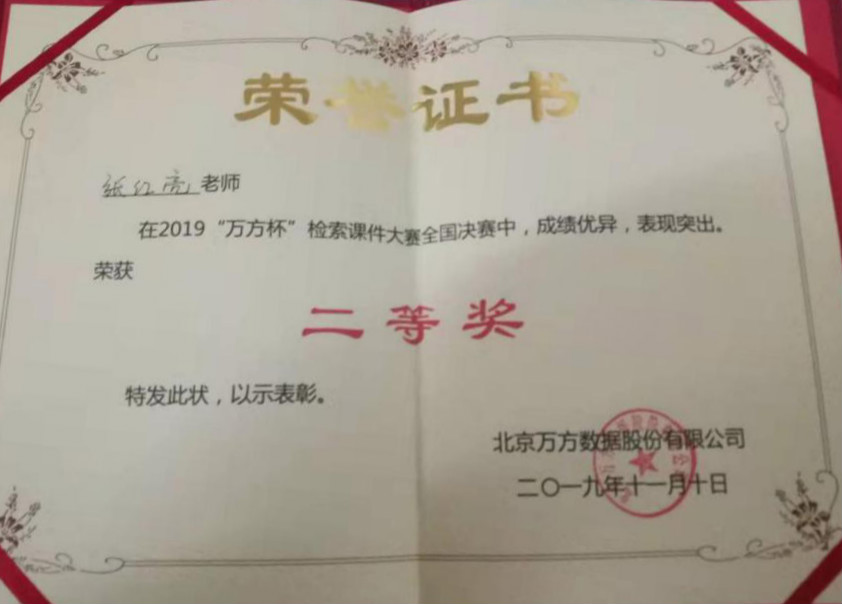 荣誉证书
张红亮 老师
在2019“万方杯”检索课件大赛全国决赛中，成绩优异，表现突出。
荣获
二等奖
特发此状，以示表彰。
北京万方数据股份有限公司
二〇一九年十一月十日